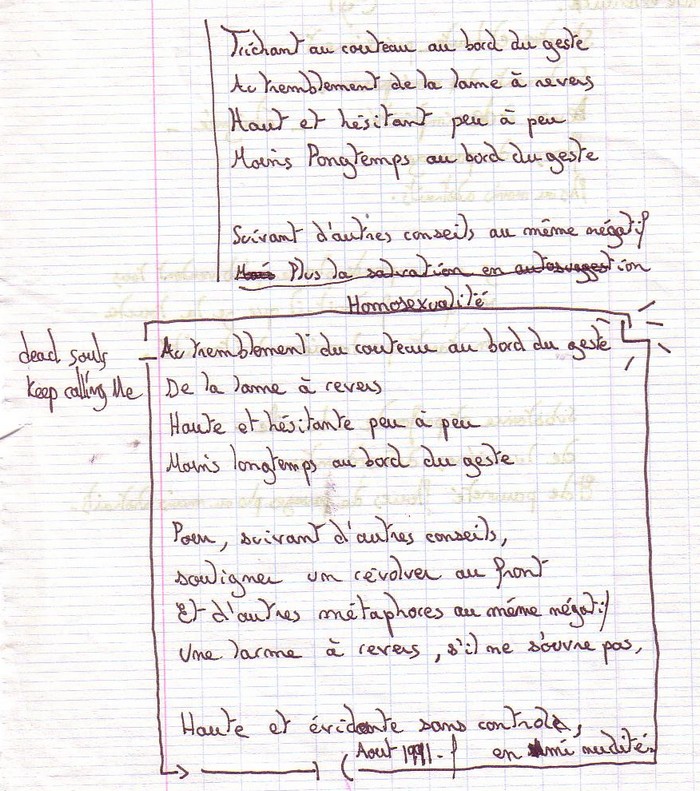 Trichant au couteau au bord du geste
Au tremblement de la lame à revers
Haut et hésitant peu à peu
Moins longtemps au bord du geste
Suivant d'autres conseils au même négatif
Mais Plus la salivation en autosuggestion
Homosexualité
dead souls
keep calling Me
Au tremblement du couteau au bord du geste
De la lame à revers
Haute et hésitante peu à peu
Moins longtemps au bord du geste
Pour, suivant d'autres conseils,
souligner un révolver au front
Et d'autres métaphores au même négatif
Une larme à revers, s'il ne s'ouvre pas,
Haute et évidente sans contrôle,
en mi nudité.
(Aout 1991.)